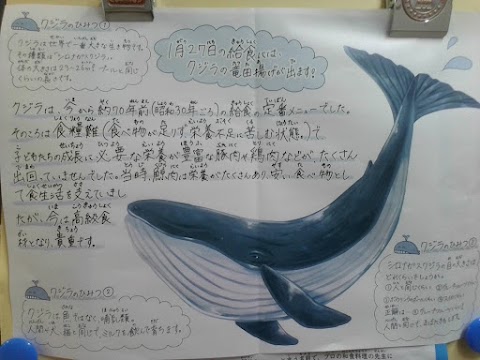 クジラのひみつ①
クジラは世界で一番大きな生き物です。
その種類は「シロナガスクジラ」。
体の大きさは25〜
くらいの長さです。
1月27日の給食には、
クジラの竜田揚げが出ます!
クジラは、今から約70年前(昭和30年ごろ)の給食の定番メニューでした。
そのころは食糧難(食べ物が足りず栄養不足に苦しむ状態)で
子どもたちの成長に必要な栄養が豊富な豚肉や鶏肉などが、たくさん
出回っていませんでした。当時、鯨肉は栄養がたくさんあり、安い食べ物とし
て食生活を支えていまし
たが、今は高級食
材となり、貴重です。
クジラのひみつ②
クジラは魚ではなく、哺乳類。
人間や犬、猫と同じで、ミルクを飲んで育ちます。
クジラのひみつ③
シロナガスクジラの
どれくらいでしょうか。
プロの和食料理の先生に